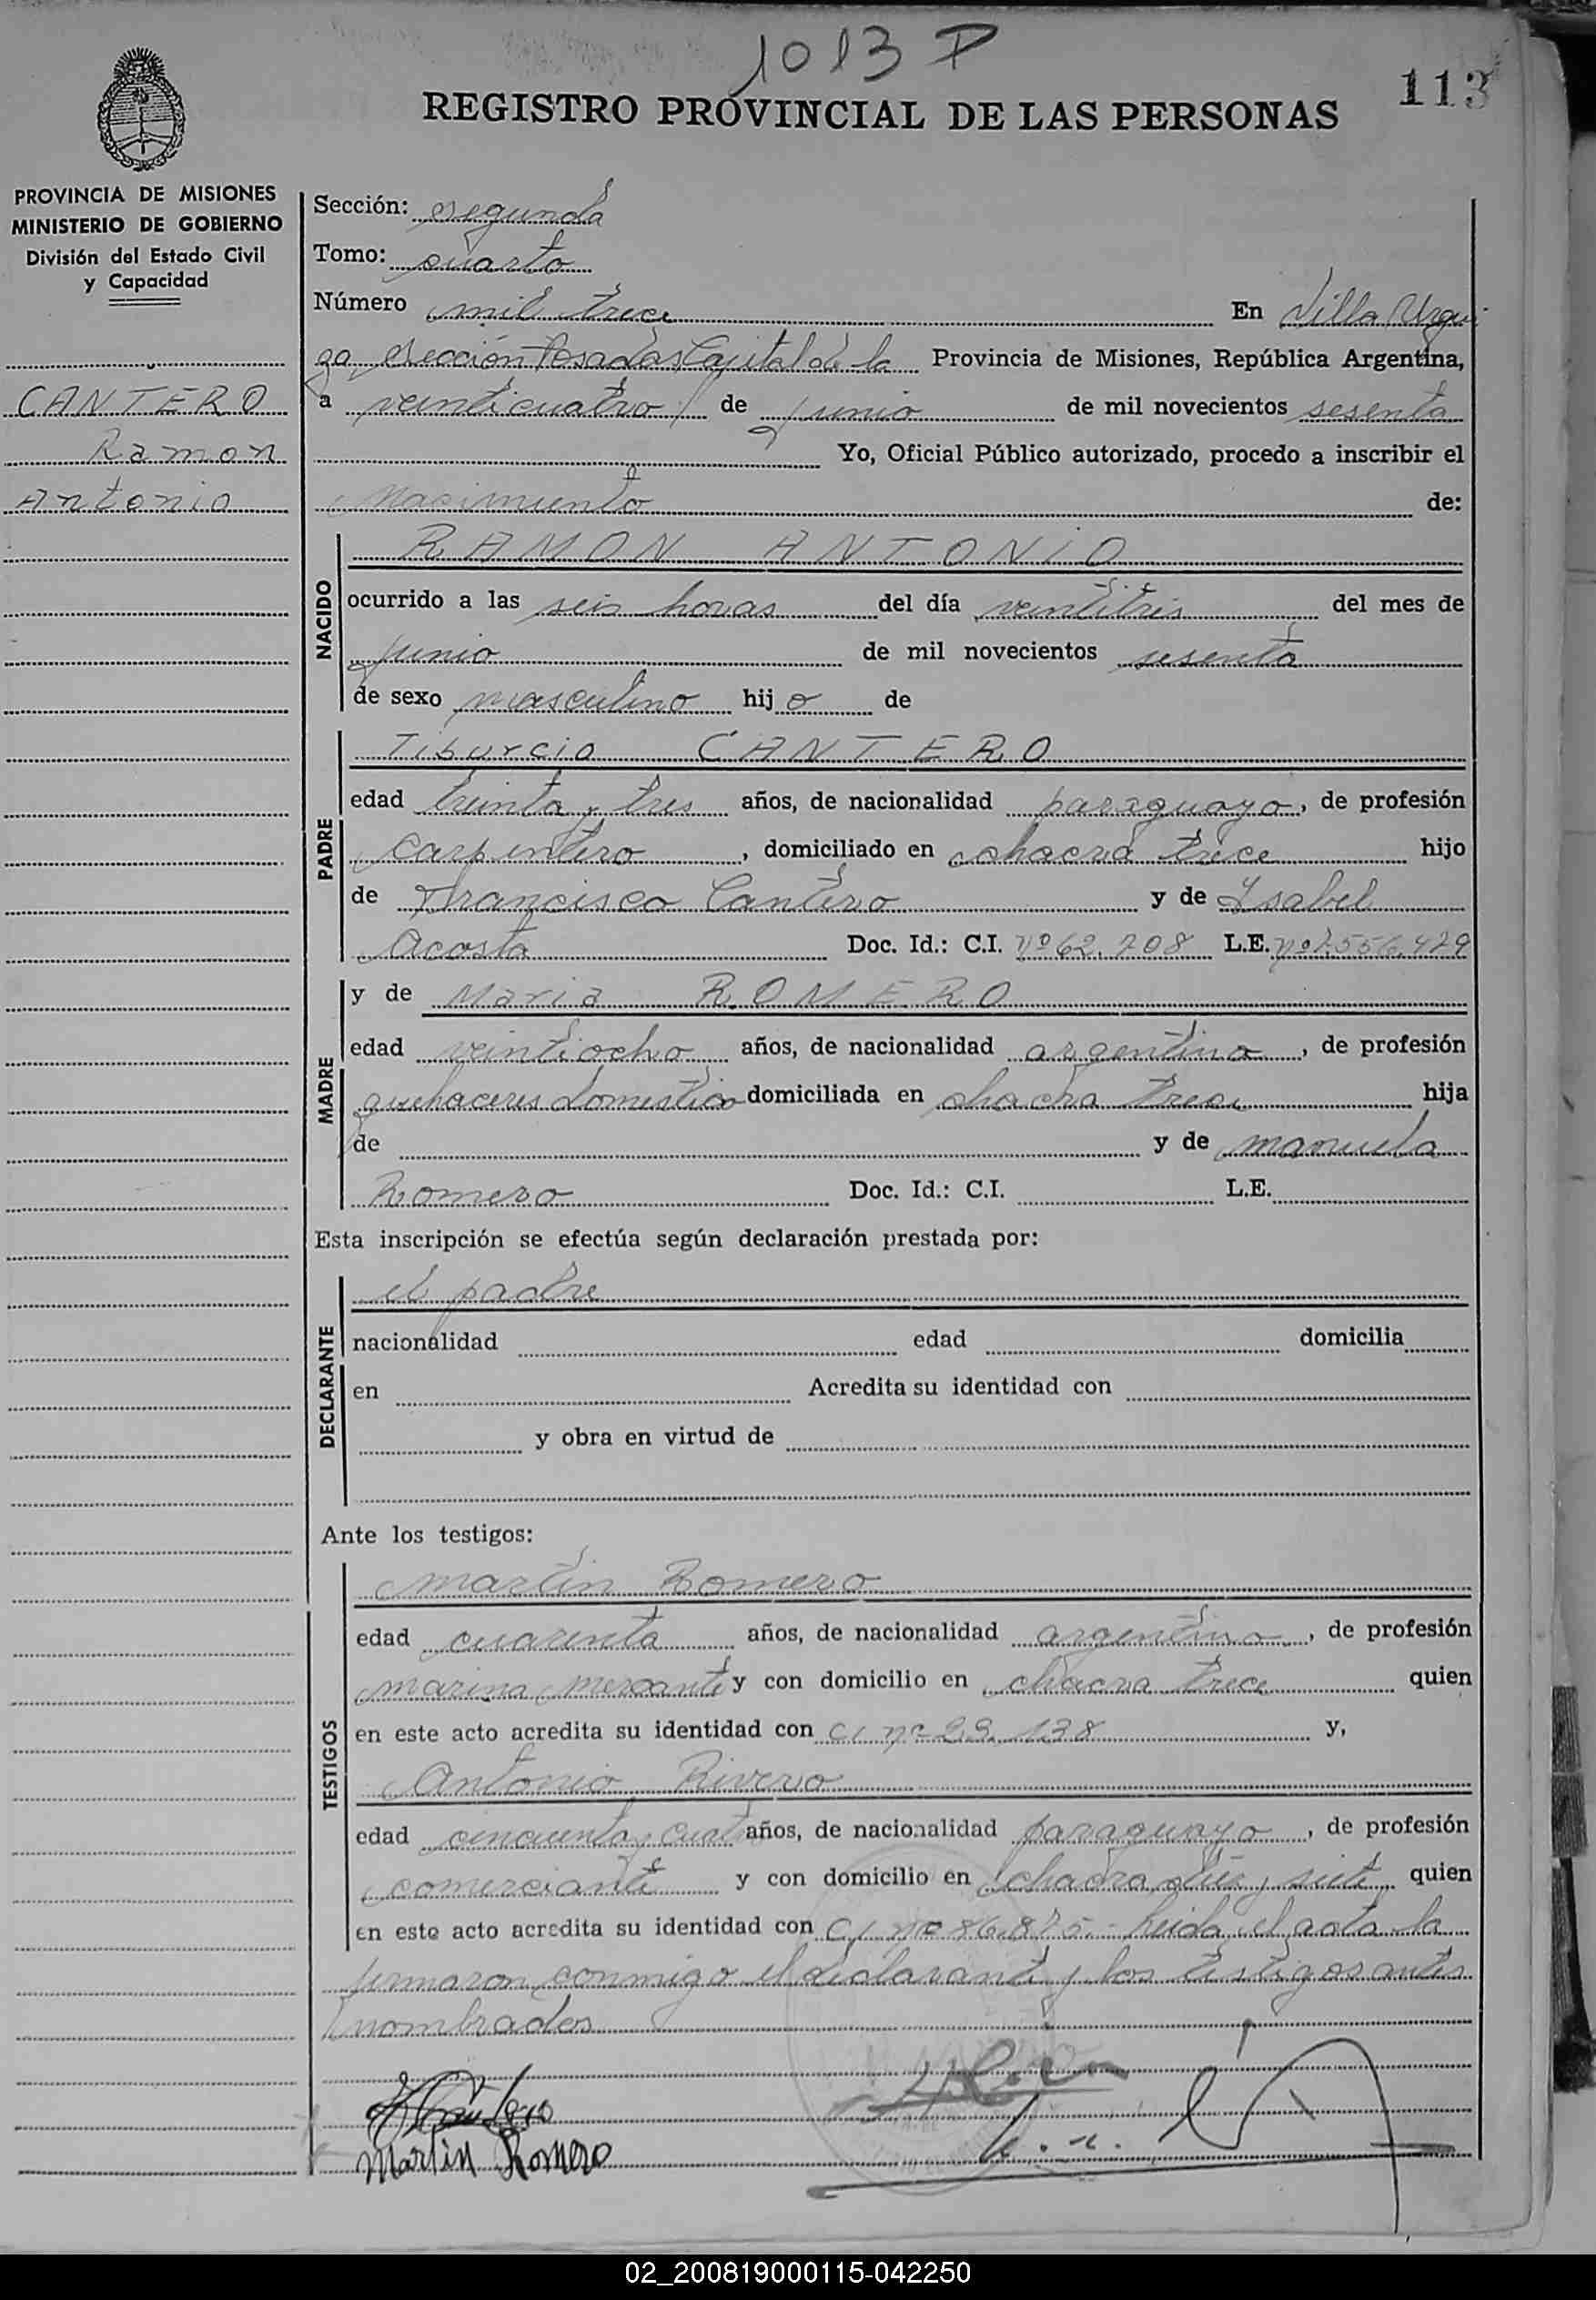 1013 P
113
REGISTRO PROVINCIAL DE LAS PERSONAS
PROVINCIA DE MISIONES
MINISTERIO DE GOBIERNO
División del Estado Civil
y Capacidad
CANTERO
Ramon
Antonio
Sección: segunda
Tomo: cuarto
Número mil trece En Villa Urqui
za sección Posadas Capital de la Provincia de Misiones, República Argentina,
a veinticuatro de junio de mil novecientos sesenta
Yo, Oficial Público autorizado, procedo a inscribir el
Nacimiento de:
NACIDO
RAMON ANTONIO
ocurrido a las seis horas del día veintitris del mes de
junio de mil novecientos sesenta
de sexo masculino hijo de
PADRE
Tiburcio CANTERO
edad treinta y tres años, de nacionalidad paraguayo, de profesión
carpintero, domiciliado en chacra trece hijo
de Francisco Cantero y de Ysabel
Acosta Doc. Id.: C.I. nº 62.708 L.E. nº 7.556.429
MADRE
y de Maria ROMERO
edad veintiocho años, de nacionalidad argentina, de profesión
quehaceres domestico domiciliada en chacra trece hija
de y de manuela
Romero Doc. Id.: C.I. L.E.
Esta inscripción se efectúa según declaración prestada por:
DECLARANTE
el padre
nacionalidad edad domicilia
en Acredita su identidad con
y obra en virtud de
Ante los testigos:
TESTIGOS
Martin Romero
edad cuarenta años, de nacionalidad argentino, de profesión
marina mercante y con domicilio en chacra trece quien
en este acto acredita su identidad con CI nº 29.138 y,
Antonio Rivero
edad cincuenta y cuatro años, de nacionalidad paraguayo, de profesión
comerciante y con domicilio en chacra diez y siete quien
en este acto acredita su identidad con CI nº 86.875.- Leida el acta la
firmaron conmigo el declarante y los testigos antes
nombrados
Martin Romero
02_200819000115-042250